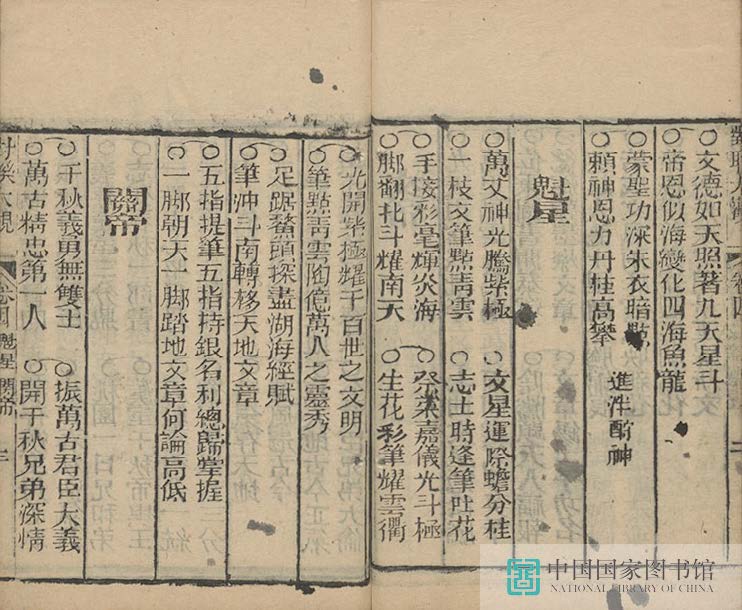 文德如天照著九天星斗
帝恩似海變化四海魚龍
蒙聖功深朱衣暗點
賴神恩力丹桂高攀 進泮酧神
魁星
萬丈神光騰紫極 文星運際蟾分桂
一枝文筆點青雲 志士時逢筆吐花
手接彩毫輝炎海 祭菜嘉儀光斗極
脚翻北斗耀南天 生花彩筆耀雲衢
光開紫極耀千百世之文明
筆點青雲陶億萬人之靈秀
足踞鰲頭探盡湖海經賦
筆沖斗南轉移天地文章
五指提筆五指持銀名利總歸掌握
一脚朝天一脚踏地文章何論高低
關帝
千秋義勇無雙士 振萬古君臣大義
萬古精忠第一人 開千秋兄弟深情
卷四 魁星 關帝 三
中国国家图书馆
NATIONAL LIBRARY OF CHINA